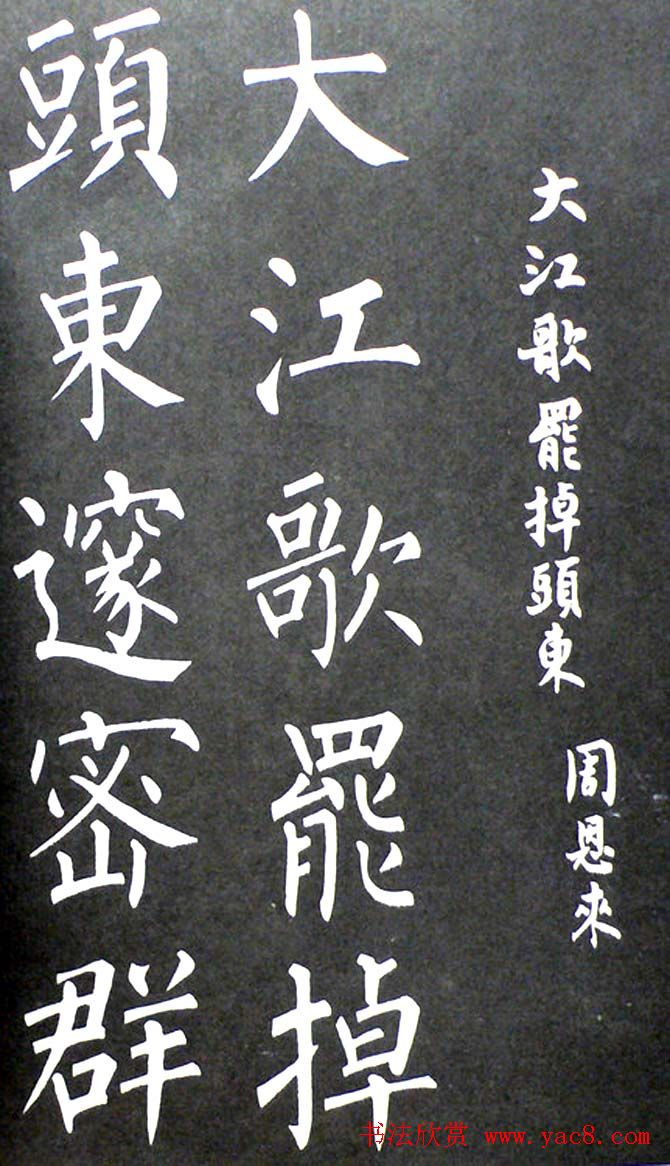 大江歌罷掉頭東
周恩來
大江歌罷掉
頭東邃密群
书法欣赏 www.yac8.com